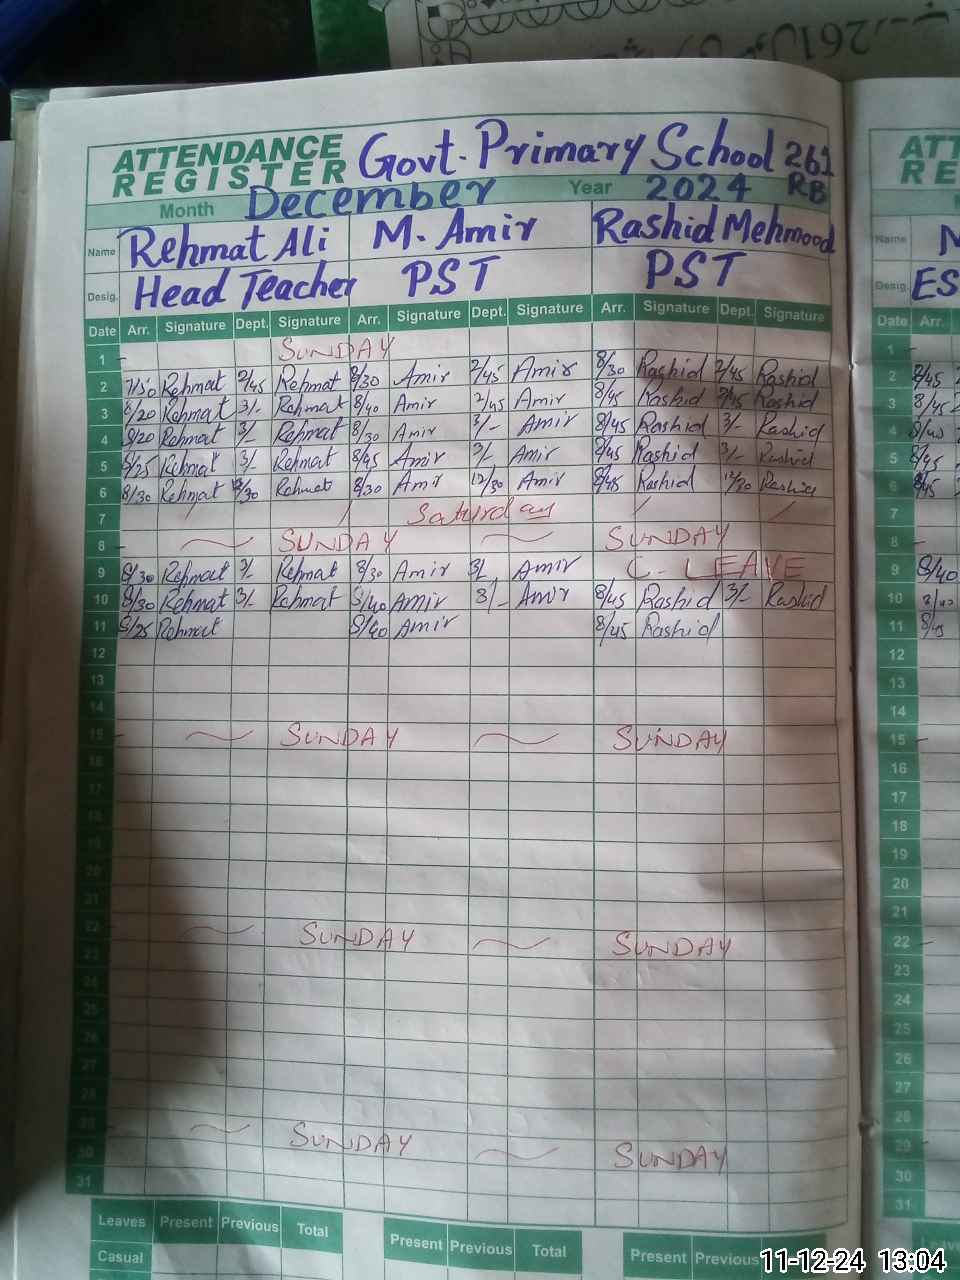 261
ATTENDANCE
REGISTER
Govt. Primary School 261 RB
Month December Year 2024
Name Rehmat Ali M. Amir Rashid Mehmood
Desig. Head Teacher PST PST
Date Arr. Signature Dept. Signature Arr. Signature Dept. Signature Arr. Signature Dept. Signature
1 SUNDAY
2 7/50 Rehmat 2/45 Rehmat 8/30 Amir 2/45 Amir 8/30 Rashid 2/45 Rashid
3 8/20 Rehmat 3/- Rehmat 8/40 Amir 2/45 Amir 8/45 Rashid 2/45 Rashid
4 8/20 Rehmat 3/- Rehmat 8/30 Amir 3/- Amir 8/45 Rashid 3/- Rashid
5 8/25 Rehmat 3/- Rehmat 8/45 Amir 3/- Amir 8/45 Rashid 3/- Rashid
6 8/30 Rehmat 12/30 Rehmat 8/30 Amir 12/30 Amir 8/45 Rashid 12/30 Rashid
7 Saturday
8 SUNDAY SUNDAY
9 8/30 Rehmat 3/- Rehmat 8/30 Amir 3/- Amir C- LEAVE
10 8/30 Rehmat 3/- Rehmat 8/40 Amir 3/- Amir 8/45 Rashid 3/- Rashid
11 8/25 Rehmat 8/40 Amir 8/45 Rashid
12
13
14
15 SUNDAY SUNDAY
16
17
18
19
20
21
22 SUNDAY SUNDAY
23
24
25
26
27
28
29 SUNDAY SUNDAY
30
31
Leaves Present Previous Total Present Previous Total Present Previous
Casual
ATT
RE
Name M
Desig. ES
Date Arr.
1
2 8/45
3 8/45
4 8/40
5 8/45
6 8/45
7
8
9 8/40
10 8/40
11 8/45
12
13
14
15
16
17
18
19
20
21
22
23
24
25
26
27
28
29
30
31
11-12-24 13:04